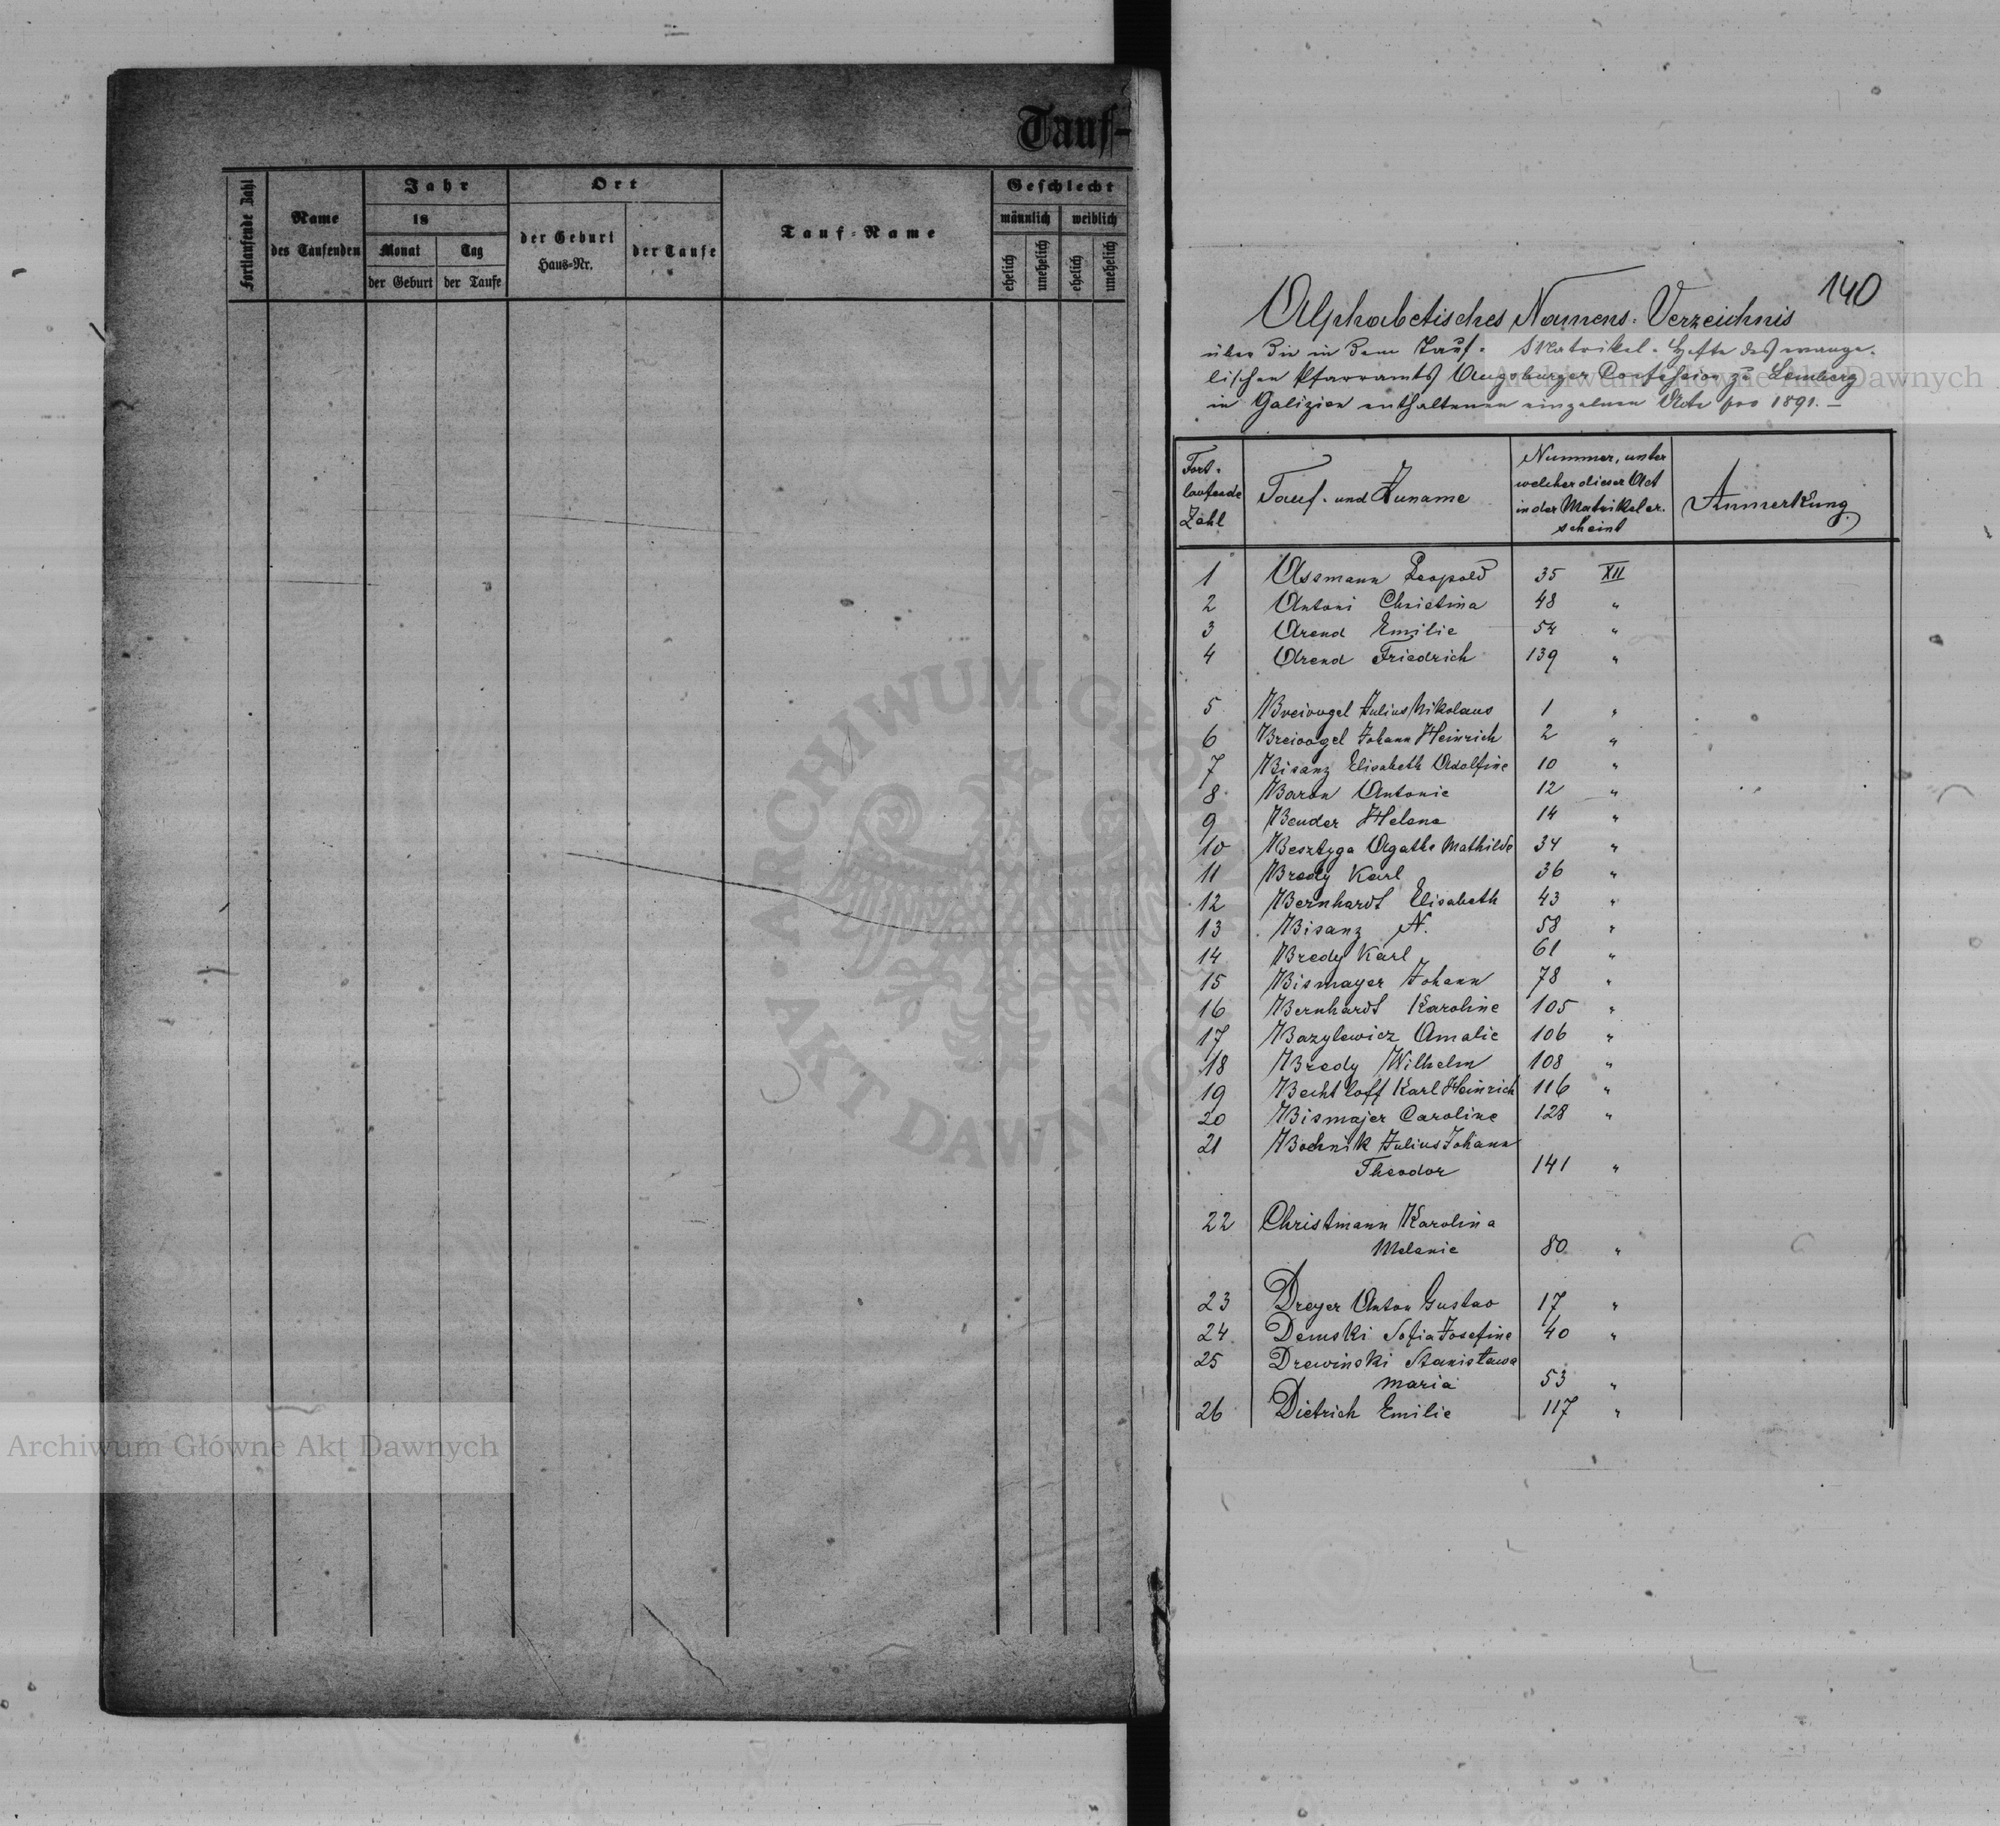 Tauf-
Fortlaufende Zahl
Name
des Taufenden
Jahr
18
Monat
der Geburt
Tag
der Taufe
Ort
der Geburt
Haus-Nr.
der Taufe
Tauf-Name
Geschlecht
männlich
weiblich
ehelich
unehelich
ehelich
unehelich
140
Alphabetisches Namens-Verzeichnis
über die in dem Tauf-Matrikel-Hefte des evange-
lischen Pfarramts Augsburger Confession zu Lemberg
in Galizien enthaltenen einzelnen Acte pro 1891.–
Fort-
laufende
Zahl
Tauf- und Zuname
Nummer, unter
welcher dieser Act
in der Matrikel er-
scheint
Anmerkung.
1 Assmann Leopold 35 XII
2 Antoni Christina 48 "
3 Arend Emilie 54 "
4 Arend Friedrich 139 "
5 Breivogel Julius Nikolaus 1 "
6 Breivogel Johann Heinrich 2 "
7 Bisanz Elisabeth Adolfine 10 "
8 Baron Antonie 12 "
9 Bender Helena 14 "
10 Besztyga Agathe Mathilde 34 "
11 Bredy Karl 36 "
12 Bernhardt Elisabeth 43 "
13 Bisanz N. 58 "
14 Bredy Karl 61 "
15 Bismayer Johann 78 "
16 Bernhardt Karoline 105 "
17 Bazylewicz Amalie 106 "
18 Bredy Wilhelm 108 "
19 Bechtloff Karl Heinrich 116 "
20 Bismajer Caroline 128 "
21 Bochnik Julius Johann
Theodor 141 "
22 Christmann Karolina
Melanie 80 "
23 Dreyer Anton Gustav 17 "
24 Demski Sofia Josefine 40 "
25 Drewinski Stanisława
Maria 53 "
26 Dietrich Emilie 117 "
Archiwum Główne Akt Dawnych
Archiwum Główne Akt Dawnych
ARCHIWUM GŁÓWNE
AKT DAWNYCH